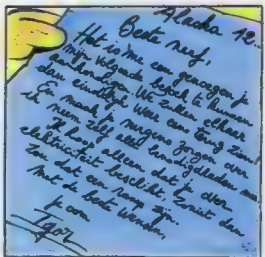 Alacha 12...
Beste neef,
Het is me een genoegen je
mijn volgende bezoek te kunnen
aankondigen. We zullen elkaar
dan eindelijk weer eens terug zien!
En maak je nergens zorgen over
ik neem zelf alle benodigdheden mee.
Ik hoop alleen dat je over
elektriciteit beschikt, zoniet dan
zou dat een ramp zijn.
Met de beste wensen,
je oom
Igor